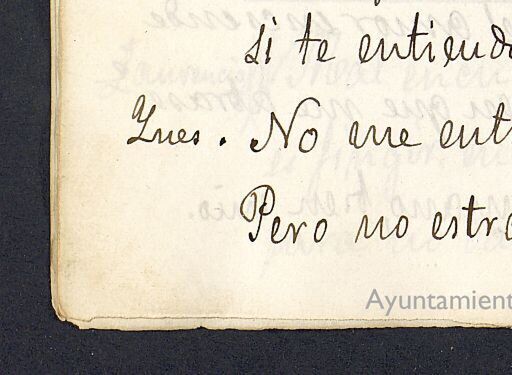 si te entiendo
Ynes. No me ent
Pero no estra
Ayuntamient